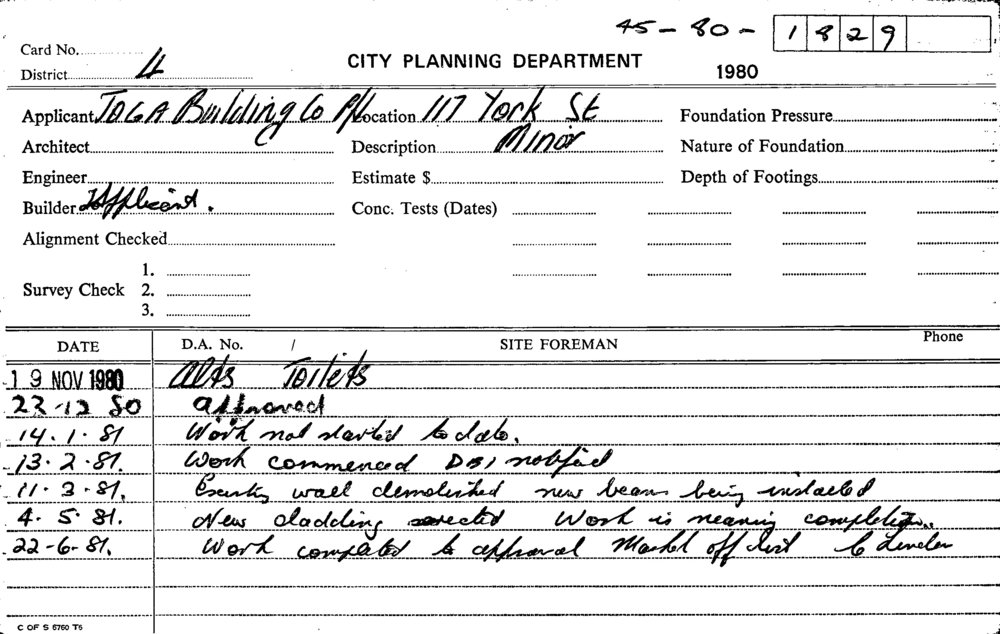 45-80- 1829
Card No.
District 4
CITY PLANNING DEPARTMENT
1980
Applicant TOGA Building Co P/L Location 117 York St Foundation Pressure
Architect Description Minor Nature of Foundation
Engineer Estimate $ Depth of Footings
Builder Applicant. Conc. Tests (Dates)
Alignment Checked
1.
Survey Check 2.
3.
DATE D.A. No. / SITE FOREMAN Phone
19 NOV 1980 Alts Toilets
22-12 80 approved
14.1.81 Work not started to date.
13.2.81. Work commenced notified
11.3.81. wall demolished new beams being installed
4.5.81. New cladding erected Work is nearing completion.
22-6-81. Work completed to approval Marked off list
C OF S 6760 T6